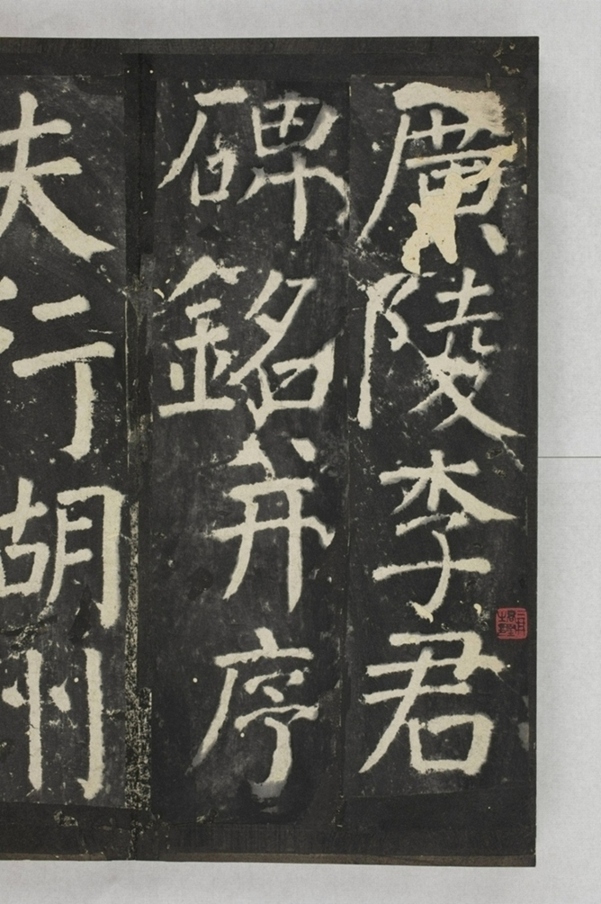 廣陵李君
碑銘并序
夫行胡州